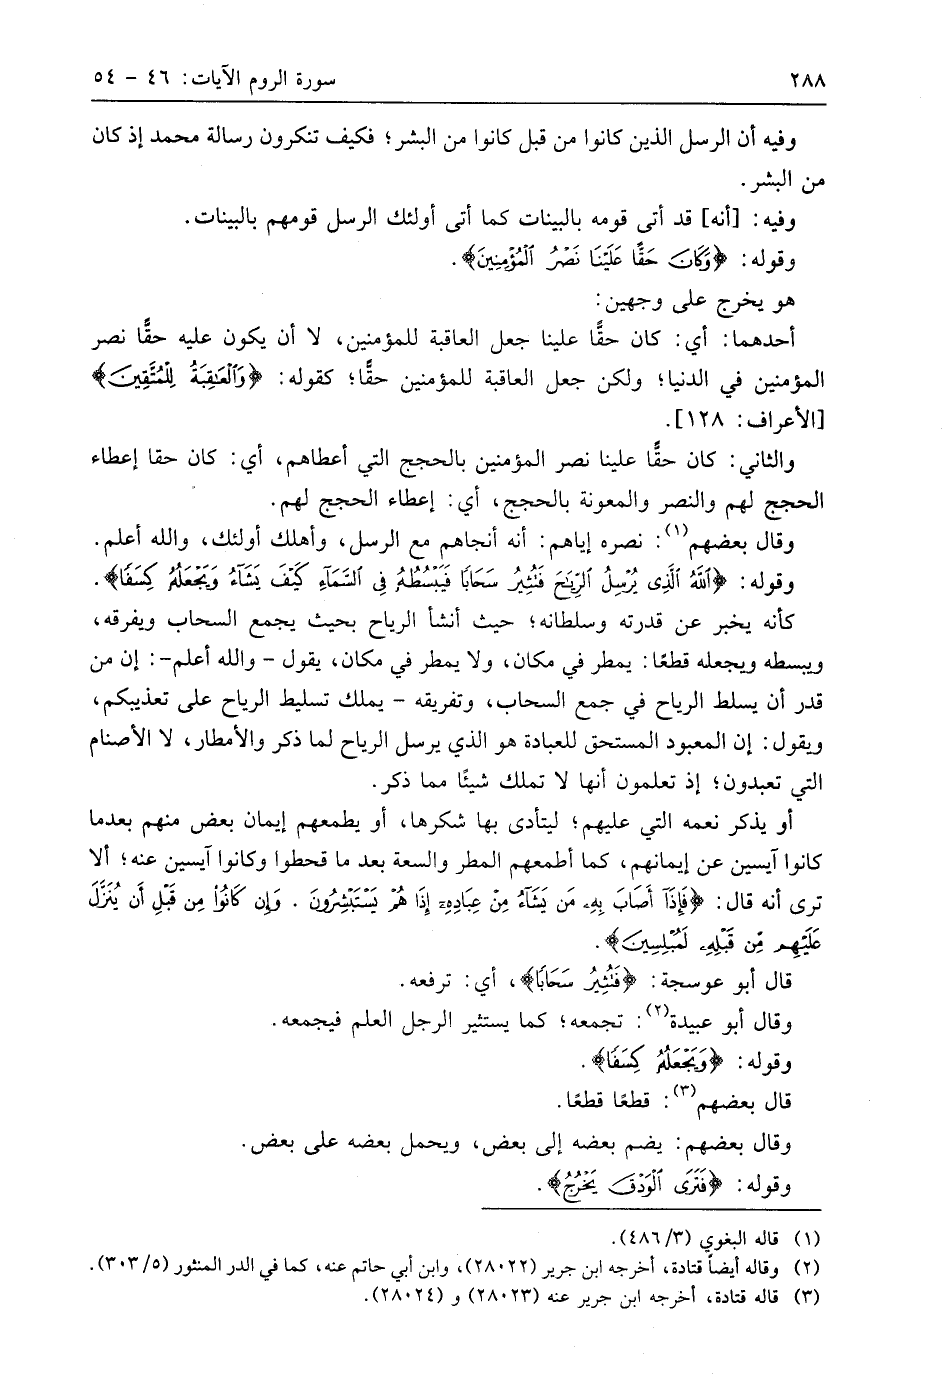 ٢٨٨ سورة الروم الآيات: ٤٦ - ٥٤
وفيه أن الرسل الذين كانوا من قبل كانوا من البشر؛ فكيف تنكرون رسالة محمد إذ كان
من البشر.
وفيه: [أنه] قد أتى قومه بالبينات كما أتى أولئك الرسل قومهم بالبينات.
وقوله: ﴿وَكَانَ حَقًّا عَلَيْنَا نَصْرُ الْمُؤْمِنِينَ﴾.
هو يخرج على وجهين:
أحدهما: أي: كان حقًّا علينا جعل العاقبة للمؤمنين، لا أن يكون عليه حقًّا نصر
المؤمنين في الدنيا؛ ولكن جعل العاقبة للمؤمنين حقًّا؛ كقوله: ﴿وَالْعَاقِبَةُ لِلْمُتَّقِينَ﴾
[الأعراف: ١٢٨].
والثاني: كان حقًّا علينا نصر المؤمنين بالحجج التي أعطاهم، أي: كان حقا إعطاء
الحجج لهم والنصر والمعونة بالحجج، أي: إعطاء الحجج لهم.
وقال بعضهم(١): نصره إياهم: أنه أنجاهم مع الرسل، وأهلك أولئك، والله أعلم.
وقوله: ﴿اللَّهُ الَّذِي يُرْسِلُ الرِّيَاحَ فَتُثِيرُ سَحَابًا فَيَبْسُطُهُ فِي السَّمَاءِ كَيْفَ يَشَاءُ وَيَجْعَلُهُ كِسَفًا﴾.
كأنه يخبر عن قدرته وسلطانه؛ حيث أنشأ الرياح بحيث يجمع السحاب ويفرقه،
ويبسطه ويجعله قطعًا: يمطر في مكان، ولا يمطر في مكان، يقول - والله أعلم-: إن من
قدر أن يسلط الرياح في جمع السحاب، وتفريقه - يملك تسليط الرياح على تعذيبكم،
ويقول: إن المعبود المستحق للعبادة هو الذي يرسل الرياح لما ذكر والأمطار، لا الأصنام
التي تعبدون؛ إذ تعلمون أنها لا تملك شيئًا مما ذكر.
أو يذكر نعمه التي عليهم؛ ليتأدى بها شكرها، أو يطمعهم إيمان بعض منهم بعدما
كانوا آيسين عن إيمانهم، كما أطمعهم المطر والسعة بعد ما قحطوا وكانوا آيسين عنه؛ ألا
ترى أنه قال: ﴿فَإِذَا أَصَابَ بِهِ مَن يَشَاءُ مِنْ عِبَادِهِ إِذَا هُمْ يَسْتَبْشِرُونَ . وَإِن كَانُوا مِن قَبْلِ أَن يُنَزَّلَ
عَلَيْهِم مِّن قَبْلِهِ لَمُبْلِسِينَ﴾.
قال أبو عوسجة: ﴿فَتُثِيرُ سَحَابًا﴾، أي: ترفعه.
وقال أبو عبيدة(٢): تجمعه؛ كما يستثير الرجل العلم فيجمعه.
وقوله: ﴿وَيَجْعَلُهُ كِسَفًا﴾.
قال بعضهم(٣): قطعًا قطعًا.
وقال بعضهم: يضم بعضه إلى بعض، ويحمل بعضه على بعض.
وقوله: ﴿فَتَرَى الْوَدْقَ يَخْرُجُ﴾.
(١) قاله البغوي (٤٨٦/٣).
(٢) وقاله أيضاً قتادة، أخرجه ابن جرير (٢٨٠٢٢)، وابن أبي حاتم عنه، كما في الدر المنثور (٣٠٣/٥).
(٣) قاله قتادة، أخرجه ابن جرير عنه (٢٨٠٢٣) و (٢٨٠٢٤).